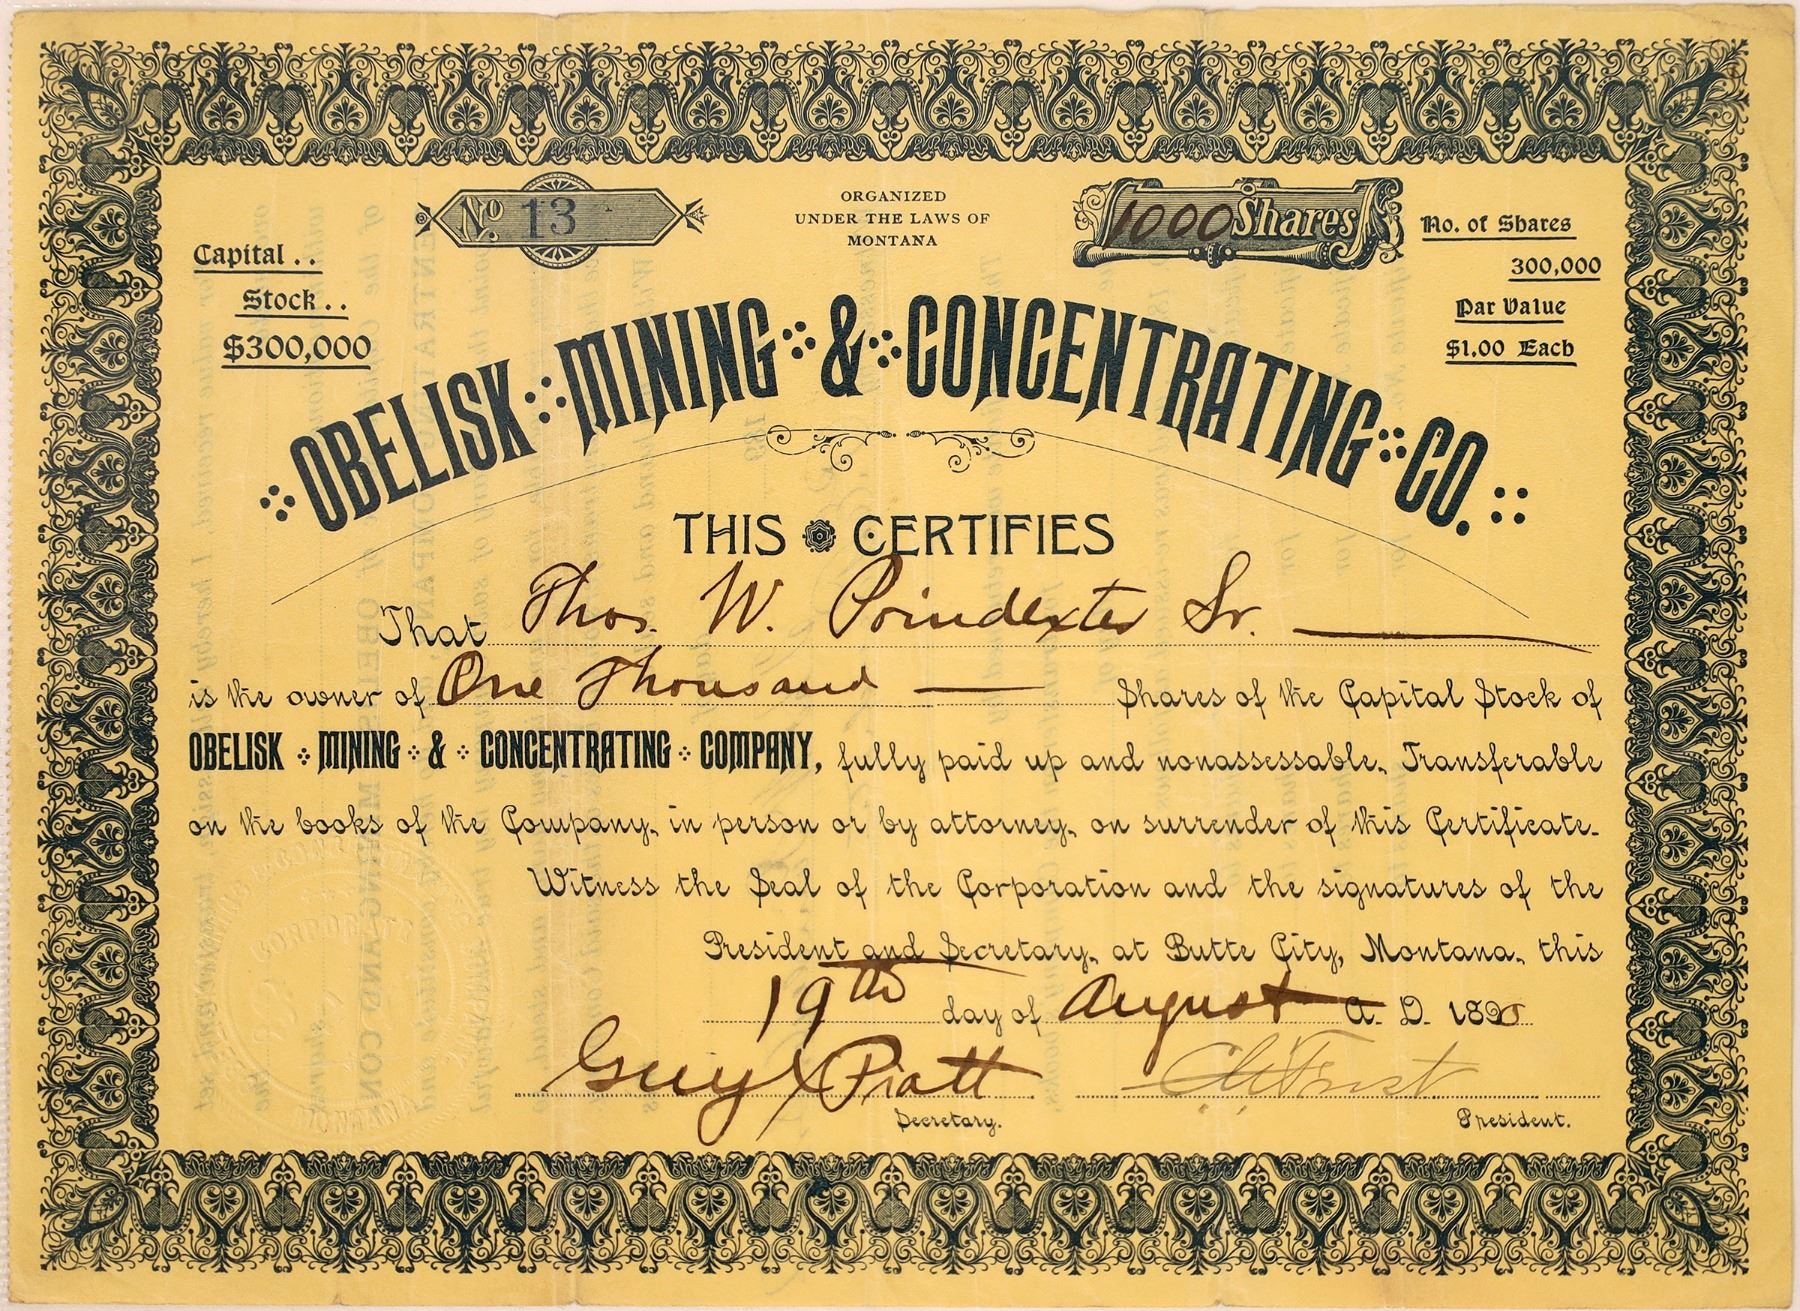 No 13
ORGANIZED
UNDER THE LAWS OF
MONTANA
1000 Shares
Capital ..
Stock ..
$300,000
No. of Shares
300,000
Par Value
$1.00 Each
OBELISK MINING & CONCENTRATING CO.
THIS CERTIFIES
That Thos. W. Poindexter Sr.
is the owner of One Thousand Shares of the Capital Stock of
OBELISK MINING & CONCENTRATING COMPANY, fully paid up and nonassessable. Transferable
on the books of the Company, in person or by attorney, on surrender of this Certificate.
Witness the Seal of the Corporation and the signatures of the
President and Secretary, at Butte City, Montana, this
19th day of August A. D. 1890
Guy X Piatt
Secretary.
President.
CORPORATE
MONTANA